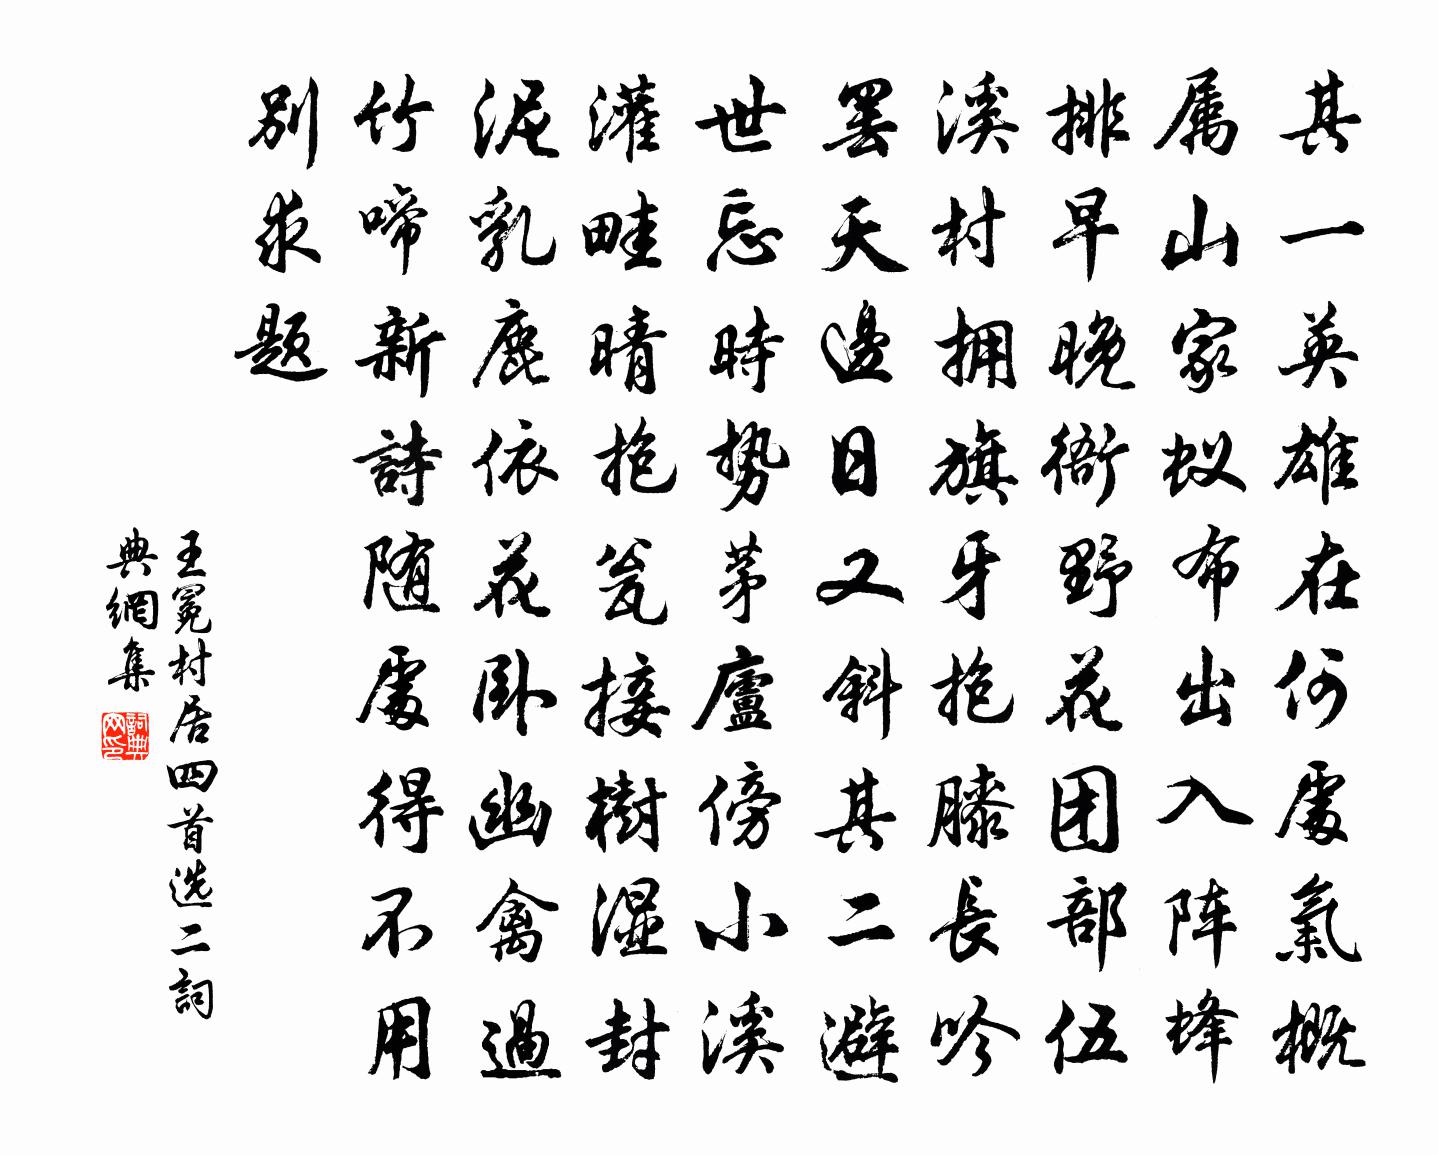 其一英雄在何處氣概
属山家蚁布出入阵蜂
排早晚衙野花团部伍
溪村拥旗牙抱膝長吟
罢天邊日又斜其二避
世忘時势茅廬傍小溪
灌畦晴抱瓮接樹湿封
泥乳鹿依花卧幽禽過
竹啼新詩随處得不用
别求题
王冕村居四首选二詞
典網集
詞典
网印